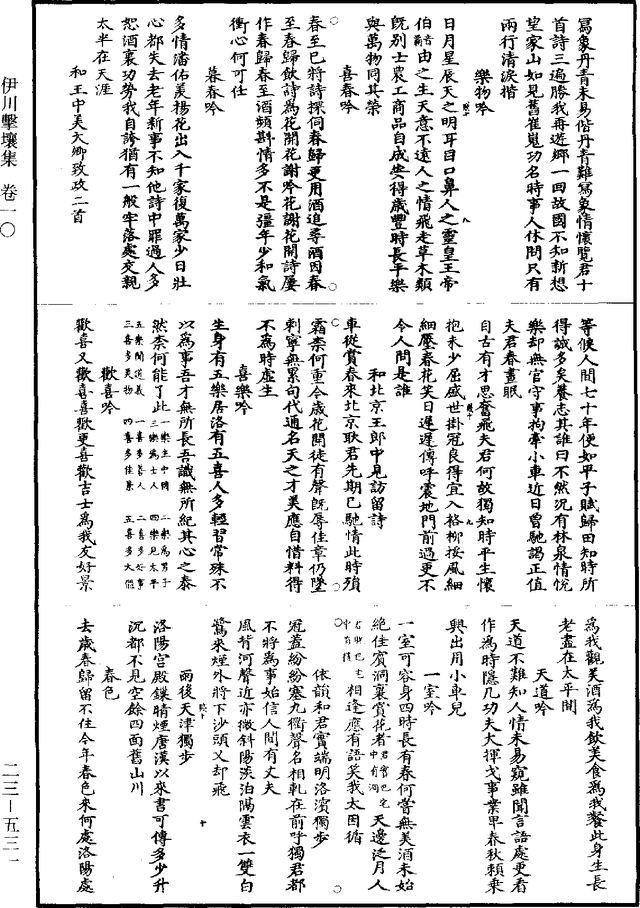 寫象丹青未易偕丹青難寫象情懷覽君十
首詩三遍勝我再遊鄉一回故國不知新想
望家山如見舊崔嵬功名時事人休問只有
兩行清淚揩
樂物吟
日月星辰天之明耳目口鼻人之靈皇王帝
伯由之生天意不遠人之情飛走草木類
既別士農工商品自成安得歲豐時長平樂
與萬物同其榮
喜春吟
春至已將詩探伺春歸更用酒追尋酒因春
至春歸飲詩為花開花謝吟花謝花開詩屢
作春歸春至酒頻斟情多不是彊年少和氣
衝心何可任
暮春吟
多情潘佑羙楊花出入千家復萬家少日壯
心都失去老年新事不知他詩中罪過人多
恕酒裏功勞我自誇猶有一般牢落處交親
太半在天涯
和王中美大卿致政二首
等候人間七十年便如甲子賦歸田知時所
得誠多矣養志其誰曰不然況有林泉情悅
樂卻無官守事拘牽小車近日曾馳謁正值
夫君春晝眠
自古有才思奮飛夫君何故獨知時平生懷
抱未少屈盛世掛冠良得宜入格柳挼風細
細壓春花笑日遲遲傳呼震地門前過更不
令人問是誰
和北京王郎中見訪留詩
車從賞春來北京耿君先期已馳情此時殞
霜柰何重今歲花開徒有聲既辱佳章仍墜
刺寧無累句代通名天之才美應自惜料得
不為時虛生
喜樂吟
生身有五樂居洛有五喜人多輕習常殊不
以為事吾才無所長吾識無所紀其心之泰
然柰何能了此一樂生中國二樂為男子三樂為士人四樂見太平五樂聞道義一喜多善人二喜多好事三喜多美物四喜多佳景五喜多大體
歡喜吟
歡喜又歡喜喜歡更喜歡吉士為我友好景
為我觀美酒為我飲美食為我餐此身生長
老盡在太平間
天道吟
天道不難知人情未易窺雖聞言語處更看
作為時隱几功夫大揮戈事業卑春秋賴乘
興出用小車兒
一室吟
一室可容身四時長有春何嘗無美酒未始
絕佳賓洞裏賞花者天邊泛月人
相逢應有語笑我太因循
依韻和君實端明洛濱獨步
冠蓋紛紛塞九衢聲名相軋在前呼獨君都
不將為事始信人間有丈夫
風背河聲近亦微斜陽淡泊隔雲衣一雙白
鷺來煙外將下沙頭又却飛
雨後天津獨步
洛陽宮殿鏁晴煙唐漢以來書可傳多少升
沉都不見空餘四面舊山川
春色
去歲春歸留不住今年春色來何處洛陽處
伊川擊壤集 卷一〇
二三—五三一